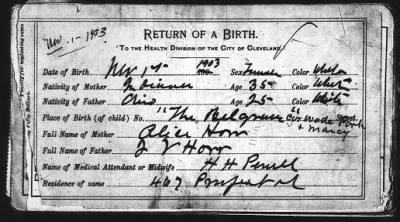 Nov. 1 - 1903
RETURN OF A BIRTH.
To the Health Division of the City of Cleveland.
Date of Birth Nov 1st 1903 Sex Female Color White
Nativity of Mother Indiana Age 35 Color White
Nativity of Father Ohio Age 25 Color White
Place of Birth (of child) No. "The Belgrave" Cor Wade Park
+ Marcy
Full Name of Mother Alice Horr
Full Name of Father Horr
Name of Medical Attendant or Midwife H H Powell
Residence of same 467 Prospect st